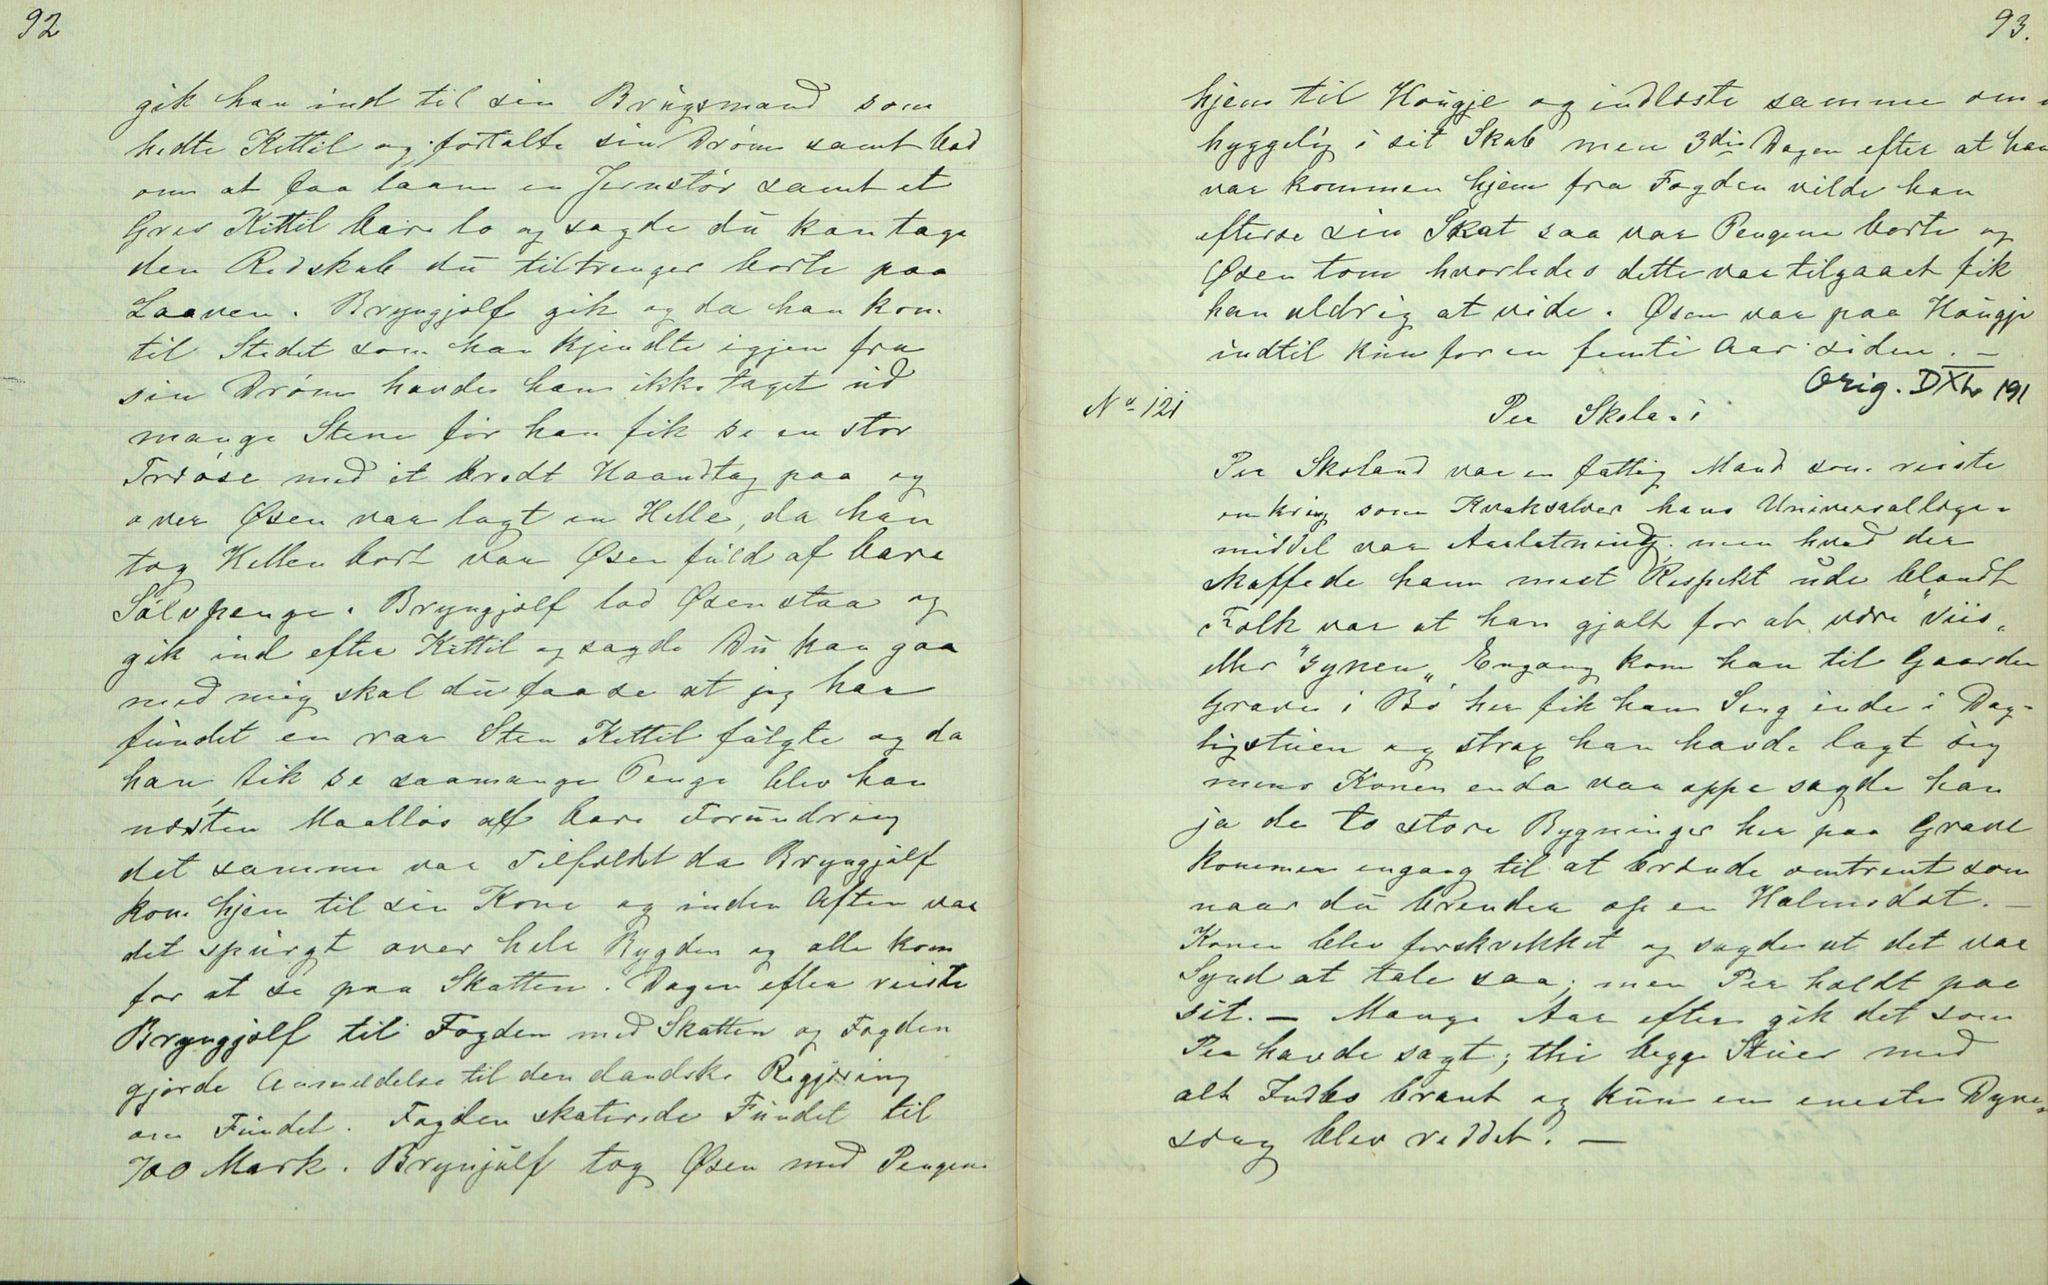 92
gik han ind til sin Brugsmand som
hedte Kittil og fortalte sin Drøm samt bad
om at faa laane en Jernstör samt et
Grev Kittil bare lo og sagde du kan tage
den Redskab du tiltrenger borte paa
Laaven. Bryngjolf gik og da han kom
til Stedet som han kjendte igjen fra
sin Drøm havde han ikke taget ud
mange Stene før han fik se en stor
Treöse med et bredt Haandtag paa og
over Øsen var lagt en Helle, da han
tog Hellen bort var Øsen fuld af bare
Sölvpenge. Bryngjolf lod Øsen staa og
gik ind efter Kittil og sagde Du kan gaa
med mig skal du faa se at jeg har
fundet en rar Sten Kittil fulgte og da
han fik se saamange Penge blev han
næsten Maallös af bare Forundring
det samme var Tilfeldet da Bryngjolf
kom hjem til sin Kone og inden Aften var
det spurgt over hele Bygden og alle kom
for at se paa Skatten. Dagen efter reiste
Bryngjolf til Fogden med Skatten og Fogden
gjorde Anmeldelse til den danske Regjering
om Fundet. Fogden skaterede Fundet til
700 Mark. Brynjulf tog Øsen med Pengene
93.
hjem til Haugje og indlaste samme om-
hyggelig i sit Skab men 3die Dagen efter at han
var kommen hjem fra Fogden vilde han
efterse sin Skat saa var Pengene borte og
Øsen tom hvorledes dette var tilgaaet fik
han aldrig at vide. Øsen var paa Haugje
indtil kun for en femti Aar siden. —
Orig. 191
No 121
Per Skolan
Per Skoland var en fattig Mand som reiste
omkring som Kvaksalver hans Universallæge-
middel var men hvad der
skaffede ham mest Respekt ude blandt
Folk var at han gjalt for at være "viis"
eller "synen" Engang kom han til Gaarden
Grave i Bö her fik han Seng inde i Dag-
ligstuen og strax han havde lagt sig
mens Konen enda var oppe sagde han
ja de to store Bygninger her paa Grave
kommer engang til at brende omtrent som
naar du brender op en Halmdot. —
Konen blev forskrekket og sagde at det var
Synd at tale saa; men Per holdt paa
sit. — Mange Aar efter gik det som
Per havde sagt; thi begge Stuer med
alt Indbo brant og kun en eneste Dyne-
seng blev reddet. —